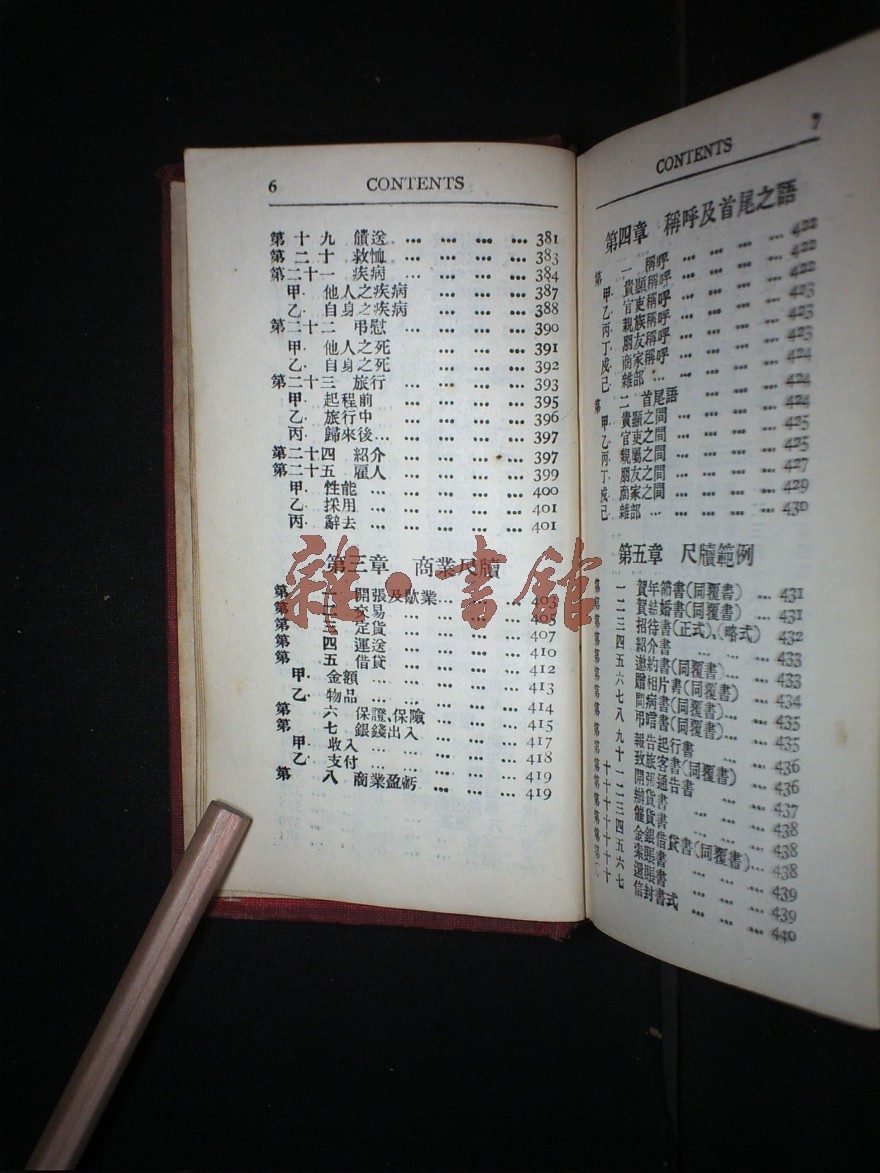 6 CONTENTS
第十九 饋送 … … … … 381
第二十 救恤 … … … … 383
第二十一 疾病 … … … … 384
甲. 他人之疾病 … … … 387
乙. 自身之疾病 … … … 388
第二十二 弔慰 … … … … 390
甲. 他人之死 … … … 391
乙. 自身之死 … … … 392
第二十三 旅行 … … … … 393
甲. 起程前 … … … 395
乙. 旅行中 … … … 396
丙. 歸來後… … … … 397
第二十四 紹介 … … … … 397
第二十五 雇人 … … … … 399
甲. 性能 … … … … 400
乙. 採用 … … … … 401
丙. 辭去 … … … … 401
第三章 商業尺牘
第一 開張及歇業 … … … 403
第二 交易 … … … … 405
第三 定貨 … … … … 407
第四 運送 … … … … 410
第五 借貸 … … … … 412
甲. 金額 … … … … 413
乙. 物品 … … … … 414
第六 保證、保險 … … … 415
第七 銀錢出入 … … … 417
甲. 收入 … … … … 418
乙. 支付 … … … … 419
第八 商業盈虧 … … … 419
雜·書館
CONTENTS 7
第四章 稱呼及首尾之語
第一 稱呼 … … … … 422
甲. 貴顯稱呼 … … … 422
乙. 官吏稱呼 … … … 422
丙. 親族稱呼 … … … 423
丁. 朋友稱呼 … … … 423
戊. 商家稱呼 … … … 424
己. 雜部 … … … … 424
第二 首尾語 … … … 424
甲. 貴顯之間 … … … 424
乙. 官吏之間 … … … 425
丙. 親屬之間 … … … 425
丁. 朋友之間 … … … 427
戊. 商家之間 … … … 429
己. 雜部 … … … … 430
第五章 尺牘範例
第一 賀年節書(同覆書) … 431
第二 賀結婚書(同覆書) … 431
第三 招待書(正式)、(略式) 432
第四 紹介書 … … … 433
第五 邀約書(同覆書)… … 433
第六 贈相片書(同覆書) … 434
第七 問病書(同覆書)… … 435
第八 弔唁書(同覆書)… … 435
第九 報告起行書 … … 436
第十 致旅客書(同覆書) … 436
第十一 開張通告書 … … 437
第十二 辦貨書 … … … 438
第十三 催貨書 … … … 438
第十四 金銀借貸書(同覆書)… 438
第十五 索賬書 … … … 439
第十六 還賬書 … … … 439
第十七 信封書式 … … … 440